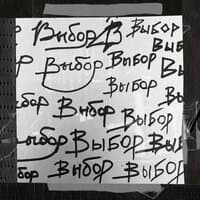 Выбор В ВЫБОР
Выбор ВЫБОР Выб
Выбор Выбор Вы
бор Выбор Выбор
Выбор Выбор Выбор
ыбор Выбор ВЫБ
ор Выбор ВЫБОР